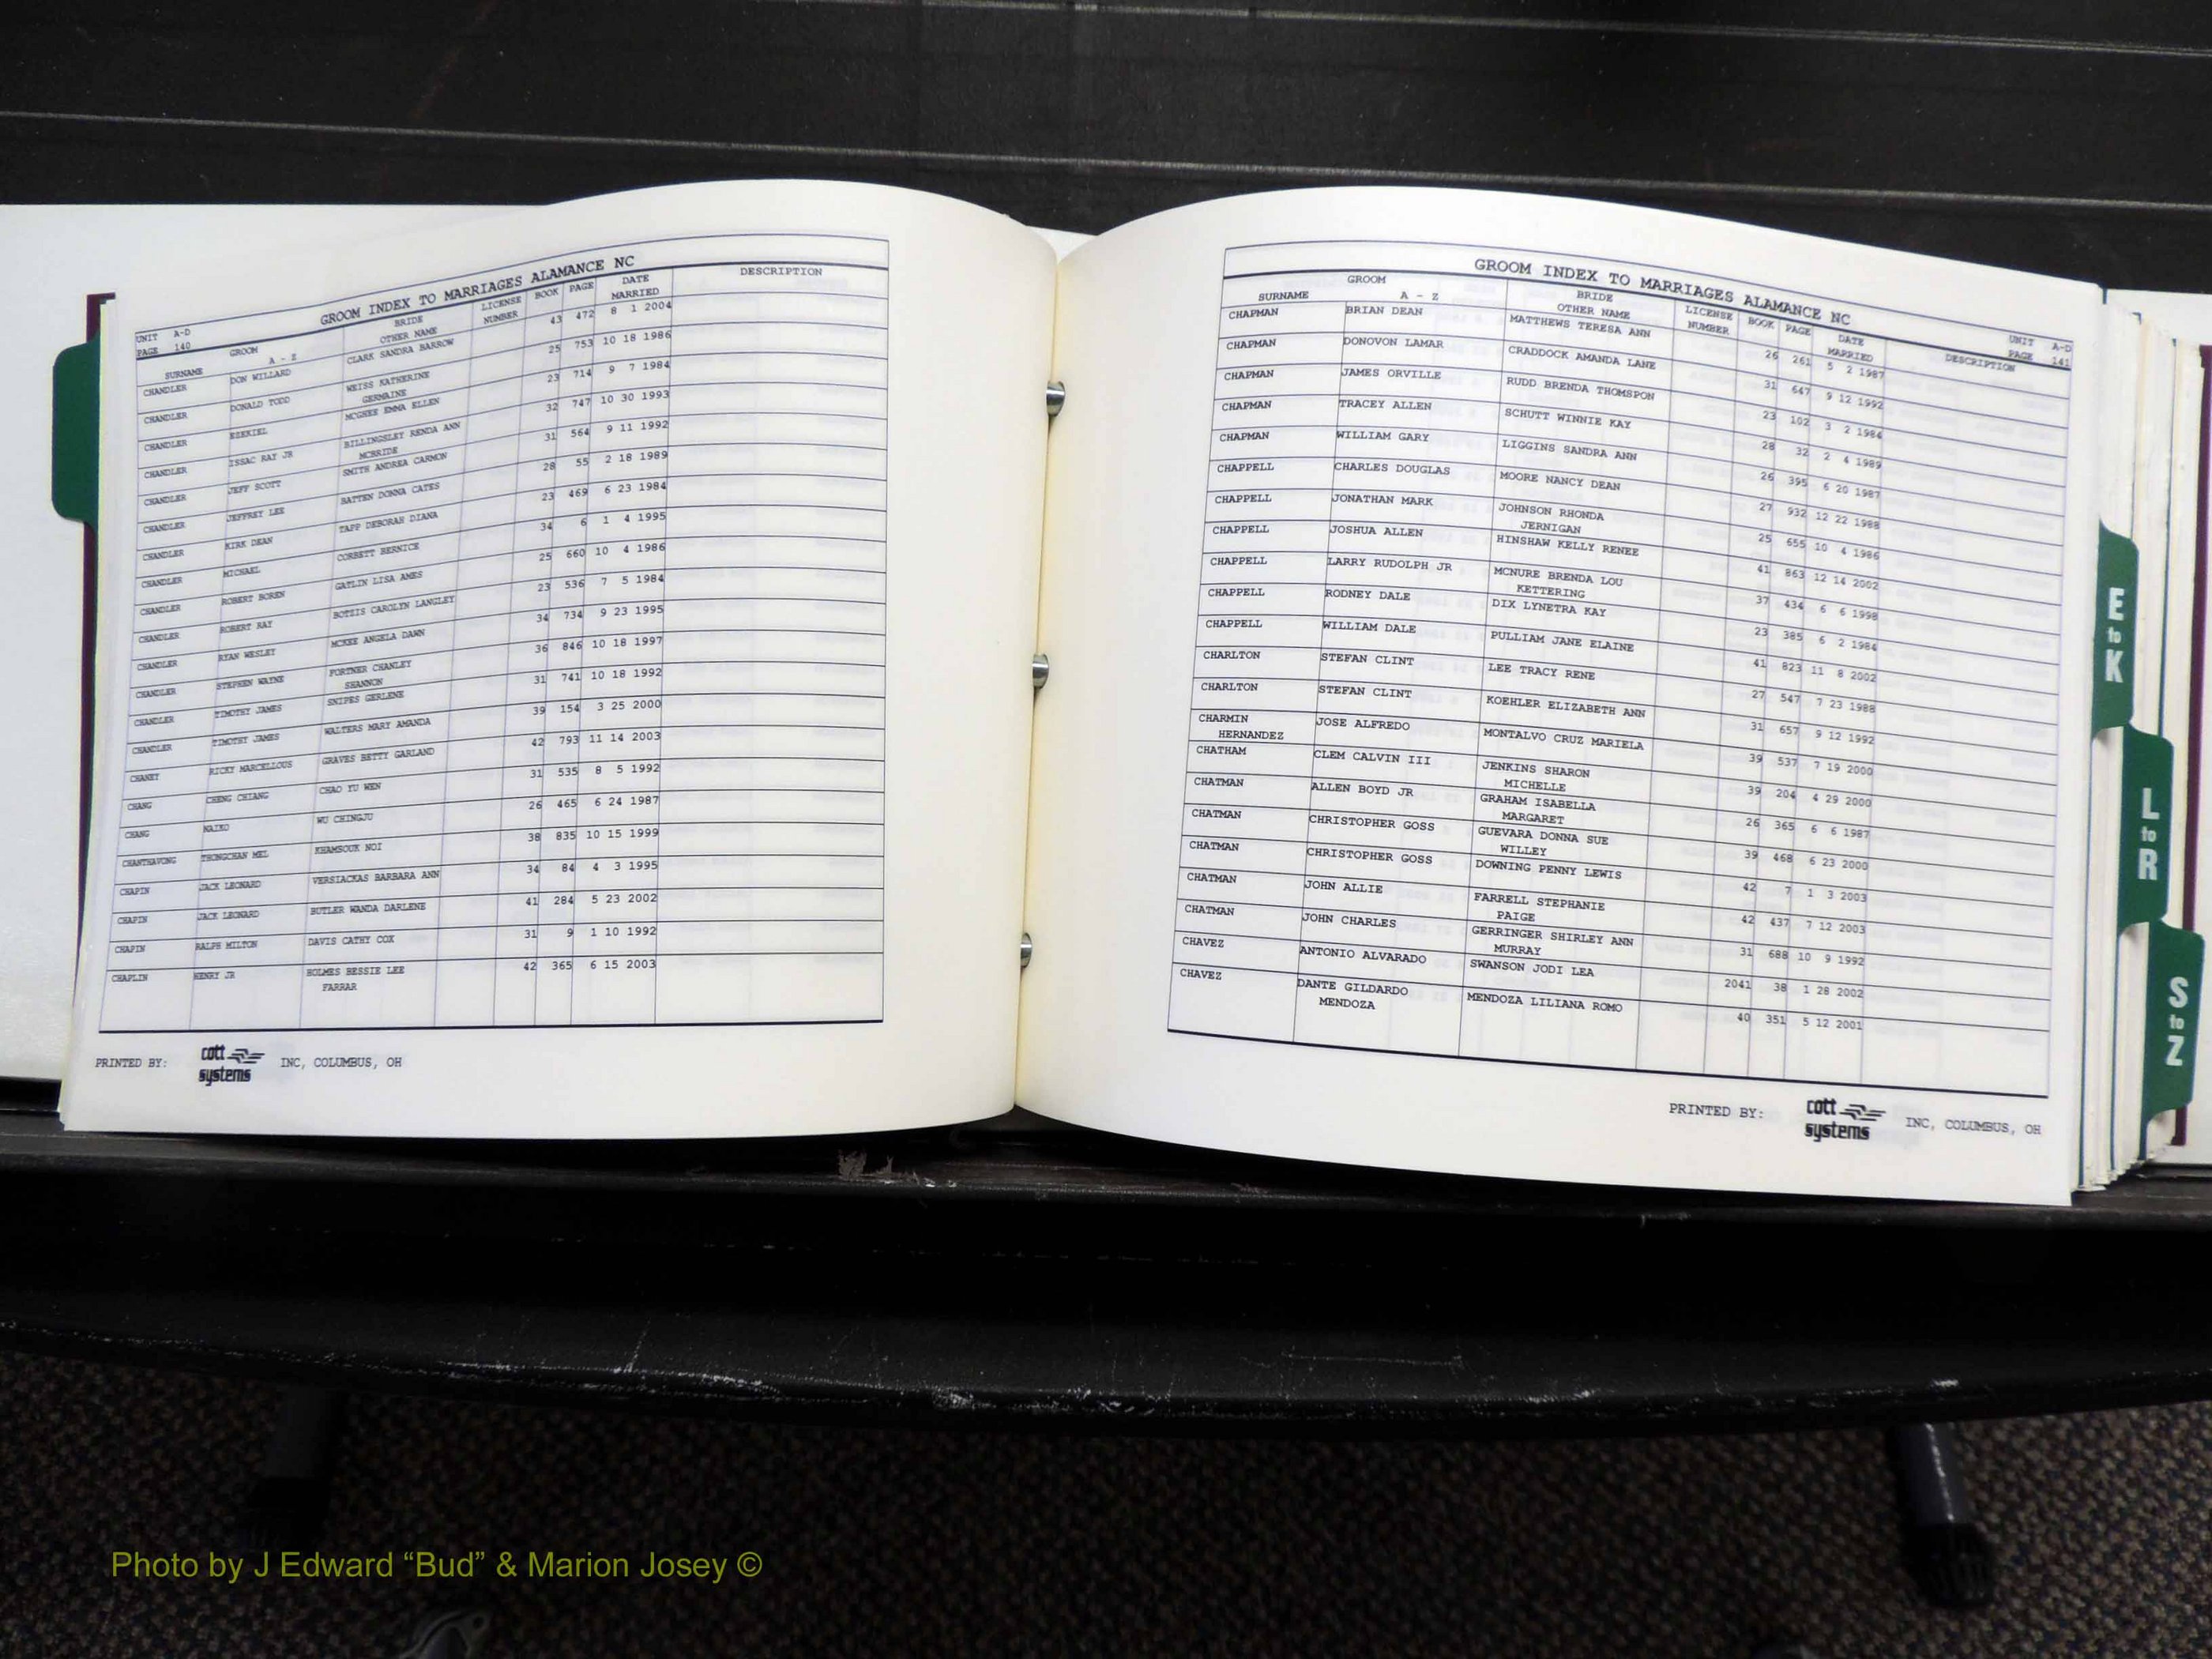 GROOM INDEX TO MARRIAGES ALAMANCE NC
UNIT A-D
PAGE 140
SURNAME GROOM A - Z BRIDE OTHER NAME LICENSE NUMBER BOOK PAGE DATE MARRIED DESCRIPTION
CHANDLER DON WILLARD CLARK SANDRA BARROW 43 472 8 1 2004
CHANDLER DONALD TODD WEISS KATHERINE 25 753 10 18 1986
GERMAINE
CHANDLER EZEKIEL MCGHEE EMMA ELLEN 23 714 9 7 1984
CHANDLER ISSAC RAY JR BILLINGSLEY RENDA ANN 32 747 10 30 1993
MCBRIDE
CHANDLER JEFF SCOTT SMITH ANDREA CARMON 31 564 9 11 1992
CHANDLER JEFFREY LEE BATTEN DONNA CATES 28 55 2 18 1989
CHANDLER KIRK DEAN TAPP DEBORAH DIANA 23 469 6 23 1984
CHANDLER MICHAEL CORBETT BERNICE 34 6 1 4 1995
CHANDLER ROBERT BOREN GATLIN LISA AMES 25 660 10 4 1986
CHANDLER ROBERT RAY BOTZIS CAROLYN LANGLEY 23 536 7 5 1984
CHANDLER RYAN WESLEY MCKEE ANGELA DAWN 34 734 9 23 1995
CHANDLER STEPHEN WAYNE FORTNER CHANLEY 36 846 10 18 1997
SHANNON
CHANDLER TIMOTHY JAMES SNIPES GERLENE 31 741 10 18 1992
CHANDLER TIMOTHY JAMES WALTERS MARY AMANDA 39 154 3 25 2000
CHANEY RICKY MARCELLOUS GRAVES BETTY GARLAND 42 793 11 14 2003
CHANG CHENG CHIANG CHAO YU WEN 31 535 8 5 1992
CHANG NAIKO WU CHINGJU 26 465 6 24 1987
CHANTHAVONG THONGCHAN MEL KHAMSOUK NOI 38 835 10 15 1999
CHAPIN JACK LEONARD VERSIACKAS BARBARA ANN 34 84 4 3 1995
CHAPIN JACK LEONARD BUTLER WANDA DARLENE 41 284 5 23 2002
CHAPIN RALPH MILTON DAVIS CATHY COX 31 9 1 10 1992
CHAPLIN HENRY JR HOLMES BESSIE LEE 42 365 6 15 2003
FARRAR
PRINTED BY: cott systems INC, COLUMBUS, OH
GROOM INDEX TO MARRIAGES ALAMANCE NC
UNIT A-D
PAGE 141
SURNAME GROOM A - Z BRIDE OTHER NAME LICENSE NUMBER BOOK PAGE DATE MARRIED DESCRIPTION
CHAPMAN BRIAN DEAN MATTHEWS TERESA ANN 26 261 5 2 1987
CHAPMAN DONOVON LAMAR CRADDOCK AMANDA LANE 31 647 9 12 1992
CHAPMAN JAMES ORVILLE RUDD BRENDA THOMSPON 23 102 3 2 1984
CHAPMAN TRACEY ALLEN SCHUTT WINNIE KAY 28 32 2 4 1989
CHAPMAN WILLIAM GARY LIGGINS SANDRA ANN 26 395 6 20 1987
CHAPPELL CHARLES DOUGLAS MOORE NANCY DEAN 27 932 12 22 1988
CHAPPELL JONATHAN MARK JOHNSON RHONDA 25 655 10 4 1986
JERNIGAN
CHAPPELL JOSHUA ALLEN HINSHAW KELLY RENEE 41 863 12 14 2002
CHAPPELL LARRY RUDOLPH JR MCNURE BRENDA LOU 37 434 6 6 1998
KETTERING
CHAPPELL RODNEY DALE DIX LYNETRA KAY 23 385 6 2 1984
CHAPPELL WILLIAM DALE PULLIAM JANE ELAINE 41 823 11 8 2002
CHARLTON STEFAN CLINT LEE TRACY RENE 27 547 7 23 1988
CHARLTON STEFAN CLINT KOEHLER ELIZABETH ANN 31 657 9 12 1992
CHARMIN JOSE ALFREDO MONTALVO CRUZ MARIELA 39 537 7 19 2000
HERNANDEZ
CHATHAM CLEM CALVIN III JENKINS SHARON 39 204 4 29 2000
MICHELLE
CHATMAN ALLEN BOYD JR GRAHAM ISABELLA 26 365 6 6 1987
MARGARET
CHATMAN CHRISTOPHER GOSS GUEVARA DONNA SUE 39 468 6 23 2000
WILLEY
CHATMAN CHRISTOPHER GOSS DOWNING PENNY LEWIS 42 7 1 3 2003
CHATMAN JOHN ALLIE FARRELL STEPHANIE 42 437 7 12 2003
PAIGE
CHATMAN JOHN CHARLES GERRINGER SHIRLEY ANN 31 688 10 9 1992
MURRAY
CHAVEZ ANTONIO ALVARADO SWANSON JODI LEA 2041 38 1 28 2002
CHAVEZ DANTE GILDARDO MENDOZA LILIANA ROMO 40 351 5 12 2001
MENDOZA
PRINTED BY: cott systems INC, COLUMBUS, OH
E to K
L to R
S to Z
Photo by J Edward “Bud” & Marion Josey ©